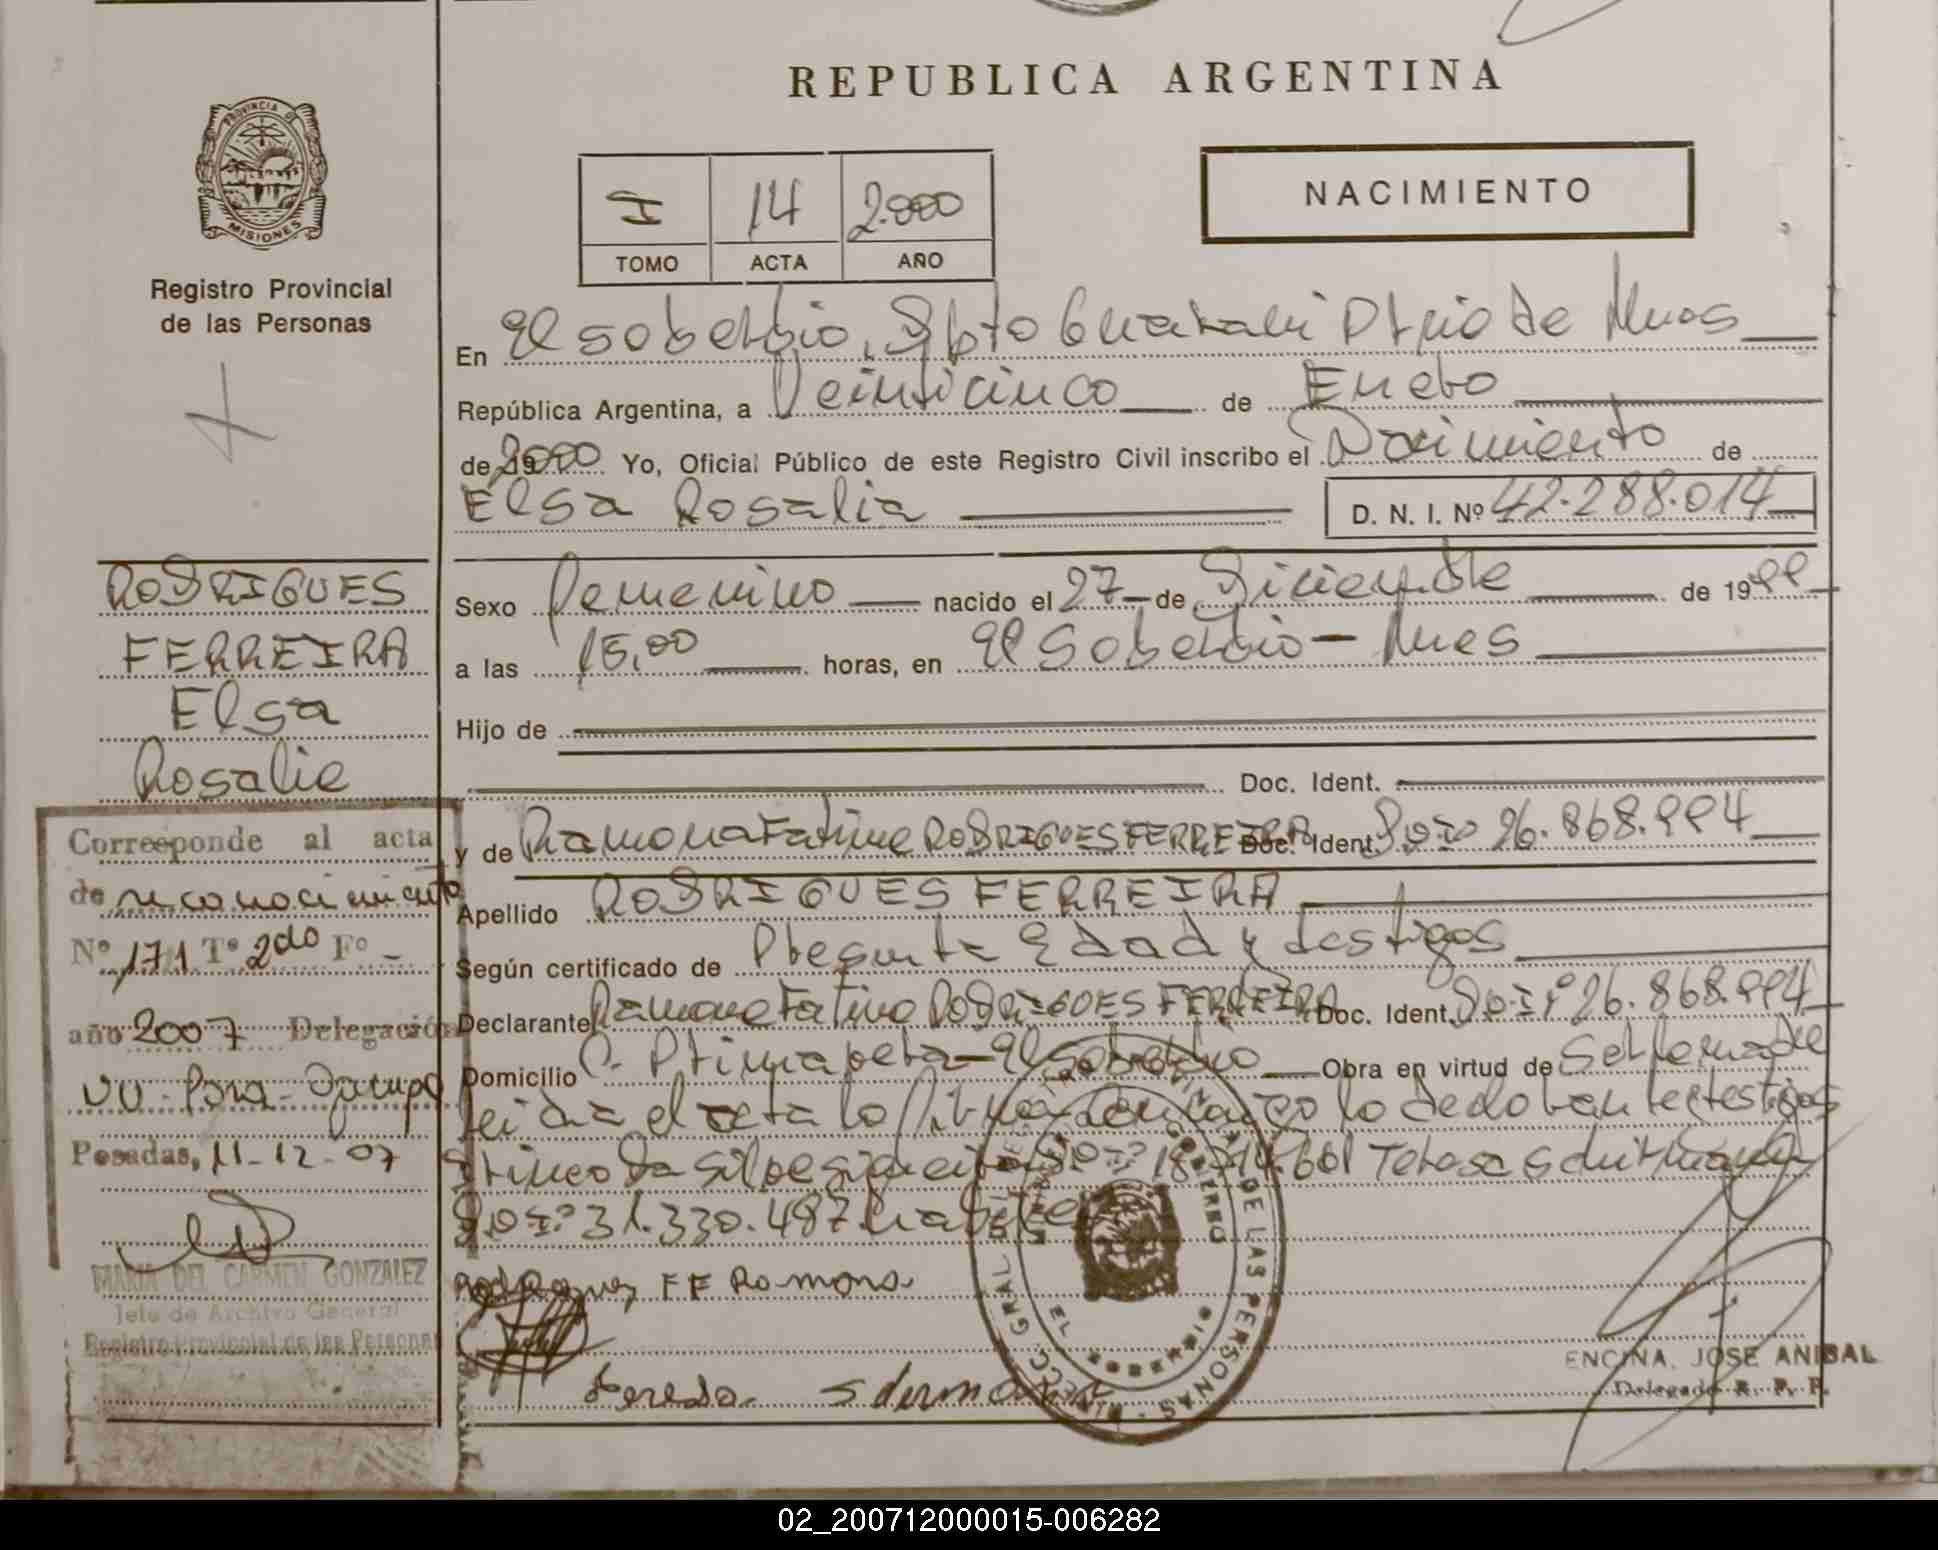 REPUBLICA ARGENTINA
PROVINCIA DE
MISIONES
Registro Provincial
de las Personas
I 14 2.000
TOMO ACTA AÑO
NACIMIENTO
En El soberbio, Dpto Guarani Ptcio de Mnes
República Argentina, a Veinticinco de Enero
de 2000 Yo, Oficial Público de este Registro Civil inscribo el Nacimiento de
Elsa Rosalia D. N. I. Nº 42.288.014
Sexo Femenino nacido el 27 de Diciembre de 1999
a las 15,00 horas, en El Soberbio - Mnes
Hijo de
Doc. Ident.
y de Ramona Fatima RODRIGUES FERREIRA Doc. Ident. 26.868.994
Apellido RODRIGUES FERREIRA
Según certificado de Presunta Edad y testigos
Declarante Ramona Fatima RODRIGUES FERREIRA Doc. Ident. 26.868.994
Domicilio C. Primavera - El Soberbio Obra en virtud de Ser la madre
leida el acta la firma conmigo la declarante testigos
da silva siqueira 18. 601 Teresa
31.330.487
FE Ramona
Teresa
RODRIGUES
FERREIRA
Elsa
Rosalia
Corresponde al acta
de reconocimiento
Nº 171 Tº 2do Fº -
año 2007 Delegación
Posadas, 11-12-07
MARIA DEL CARMEN GONZALEZ
Jefe de Archivo General
Registro Provincial de las Personas
DIRECC. GRAL. DE LAS PERSONAS
EL SOBERBIO
ENCINA, JOSE ANIBAL
Delegado R. P. P.
02_200712000015-006282